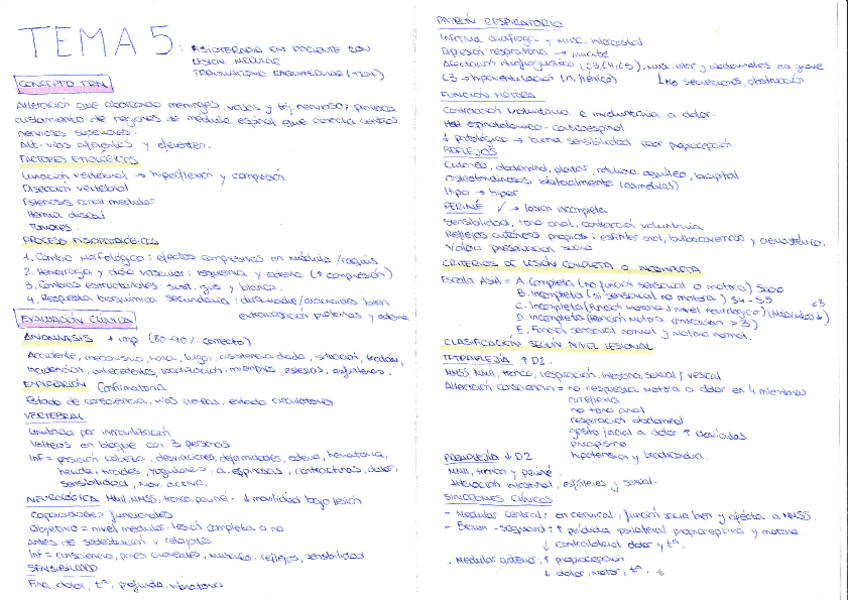 TEMA 5: FISIOTERAPIA EN PACIENTE CON
LESION MEDULAR
TRAUMATISMO RAQUIMEDULAR (TRM)
CONCEPTO TRM
Alteración que abarcando meninges, vasos y tej. nervioso; provoca
aislamiento de regiones de médula espinal que conecta centros
nerviosos superiores.
Alt. vías aferentes y eferentes.
FACTORES ETIOLÓGICOS
Luxación vertebral → hiperflexión y compresión
Disección vertebral
Estenosis canal medular
Hernia discal
Tumores
PROCESO FISIOPATOLÓGICOS
1. Cambio morfológico: efectos compresivos en médula / raquis
2. Hemorragia y daño vascular: isquemia y edema (↑ compresión)
3. Cambios estructurales: sust. gris y blanca.
4. Respuesta bioquímica secundaria:
extravasación proteínas y edema
EVALUACIÓN CLÍNICA
ANAMNESIS + imp (80-90% correcto)
Accidente, mecanismo, hora, lugar, asistencia dada, situación, traslado,
incidencias, antecedentes, localización, miembros, estesias, esfínteres.
EXPLORACIÓN Confirmatoria
Estado de consciencia, vías aéreas, estado circulatorio
VERTEBRAL
Limitada por inmovilización
Volteos en bloque con 3 personas
Inf = posición cabeza, desviaciones, deformidades, edema, hematoma,
herida, tiroides, yugulares, a. espinosas, contracturas, dolor,
sensibilidad, mov. activa.
NEUROLÓGICA MMII, MMSS, tronco, periné. ↓ movilidad bajo lesión
Capacidades funcionales
Objetivo = nivel medular. Lesión completa o no
Antes de sedestación y relajantes
Inf = consciencia, pares craneales, músculo, reflejos, sensibilidad
SENSIBILIDAD
Fina, dolor, tª, profunda, vibratoria
PATRÓN RESPIRATORIO
Informa diafragma y musc. intercostal
Depresión respiratoria → muerte
Afectación diafragmática (C3,C4,C5), musc. inter y abdominales no grave
C3 → hipoventilación (n. frénico) ↳ No secreciones, obstrucción
FUNCIÓN MOTORA
Contracción voluntaria e involuntaria a dolor.
Haz espinotalámico - corticoespinal
↓ patológico → buena sensibilidad peor propiocepción
REFLEJOS
Cutáneo, abdominal, plantar, rotuliano, aquíleo, bicipital
Osteotendinosos bilateralmente (normales)
Hipo → hiper
PERINÉ ✓ → lesión incompleta
Sensibilidad, tono anal, contracción voluntaria
Reflejos cutáneos propios: esfínter anal, bulbocavernoso y cremastérico.
Valora preservación sacra
CRITERIOS DE LESIÓN COMPLETA O INCOMPLETA
Escala ASIA = A. Completa (no función sensorial o motora) sacro
B. Incompleta (si sensorial no motora) S4 - S5
C. Incompleta (función motora ↓ nivel neurológico) (Músculos ↓) <3
D. Incompleta (función motora contracción > 3)
E. Función sensorial normal y motora normal.
CLASIFICACIÓN SEGÚN NIVEL LESIONAL
TETRAPLEJIA ↑ D1.
MMSS MMII, tronco, respiración, intestino, sexual y vesical
Alteración consciencia = no respuesta motora o dolor en 4 miembros
arreflexia
no tono anal
respiración abdominal
gesto facial a dolor ↑ clavículas
priapismo
hipotensión y bradicardia.
PARAPLEJIA ↓ D2
MMII, tronco y periné.
Alteración intestinal, esfínteres y sexual.
SÍNDROMES CLÍNICOS
- Medular central: en cervical, función sacra bien y afecta a MMSS.
- Brown-Sequard: ↑ pérdida ipsilateral propioceptiva y motora.
↓ contralateral dolor y tª.
- Medular anterior: ↑ propiocepción
↓ dolor, motor, tª.